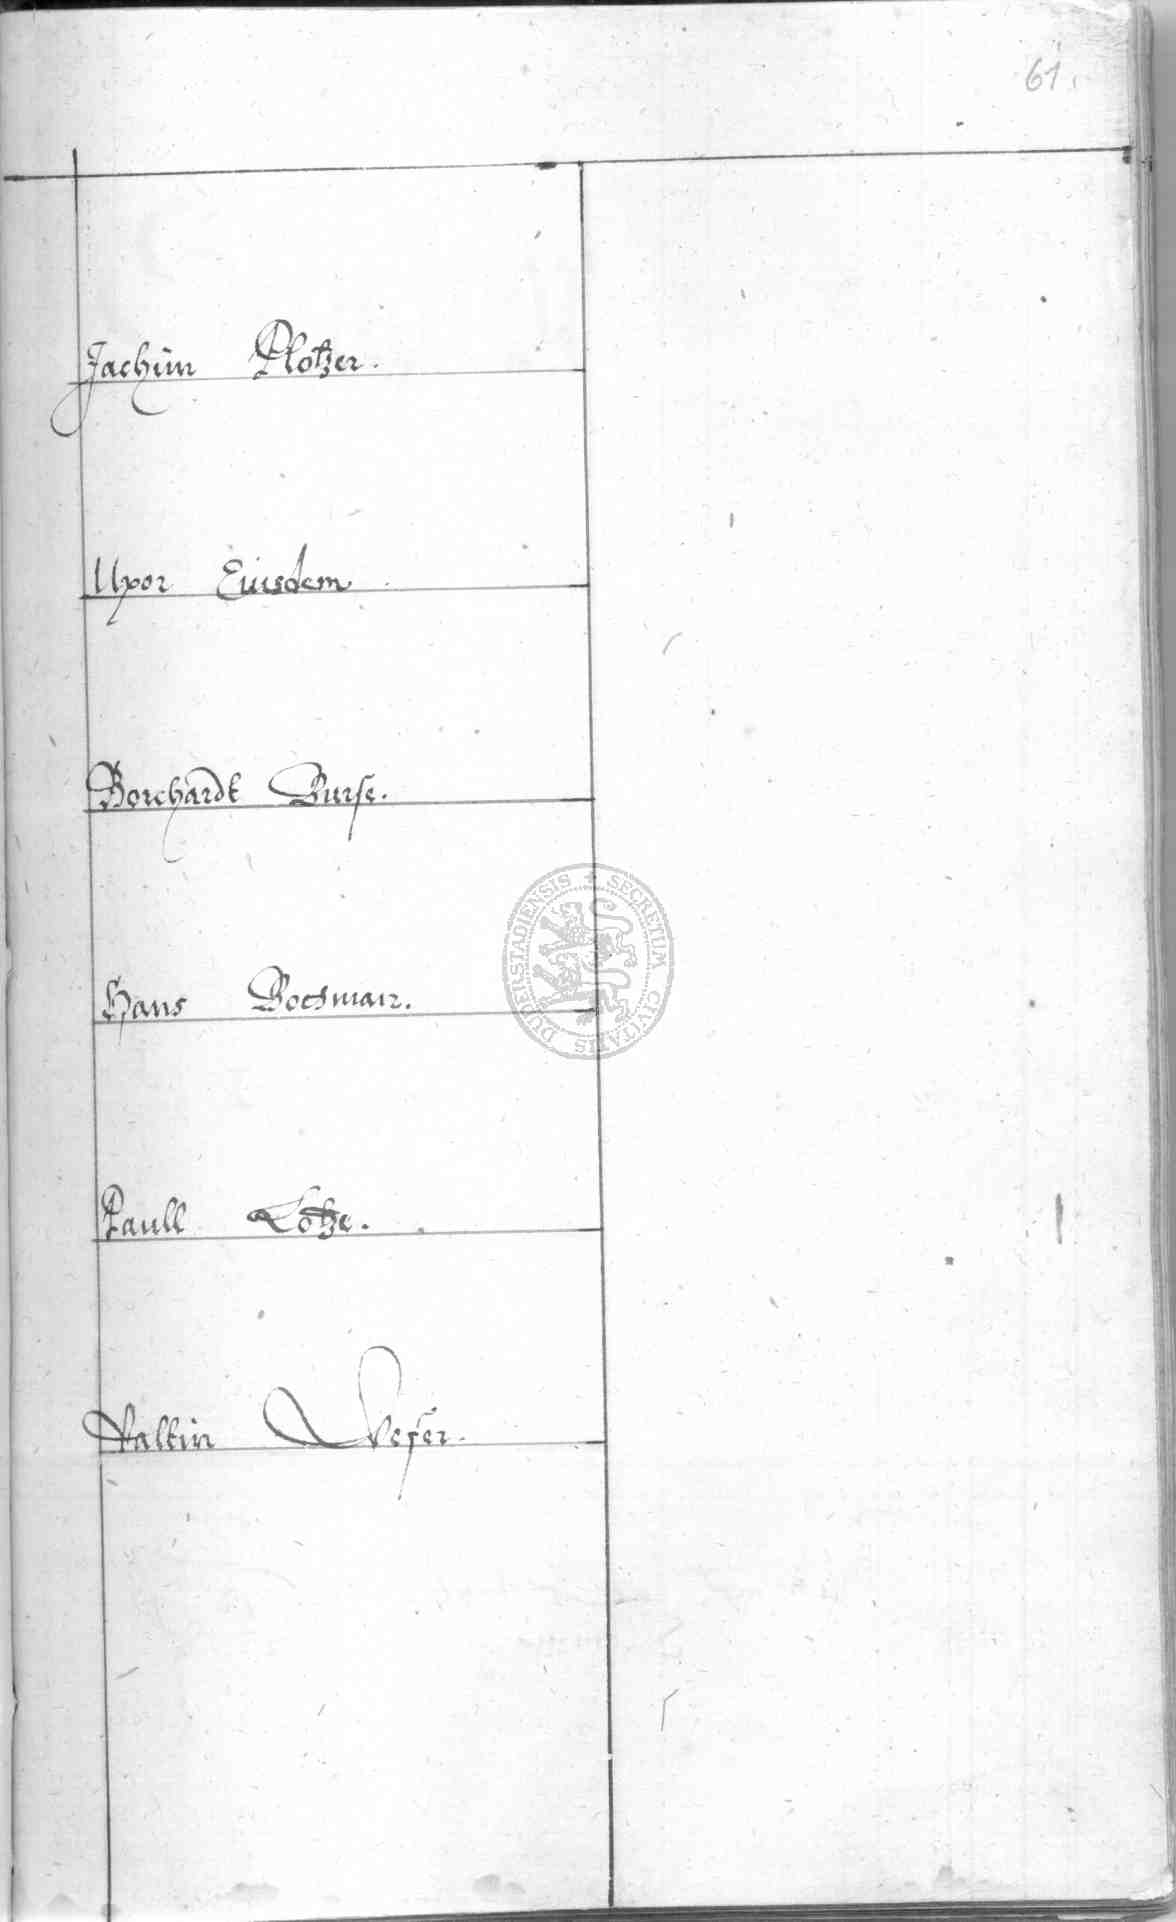 61.
Jachim Plotzer.
Uxor Eiusdem
Borchardt Burse.
Hans
Paull Lotze.
Valtin Weser.
SECRETUM CIVITATIS DUDERSTADIENSIS